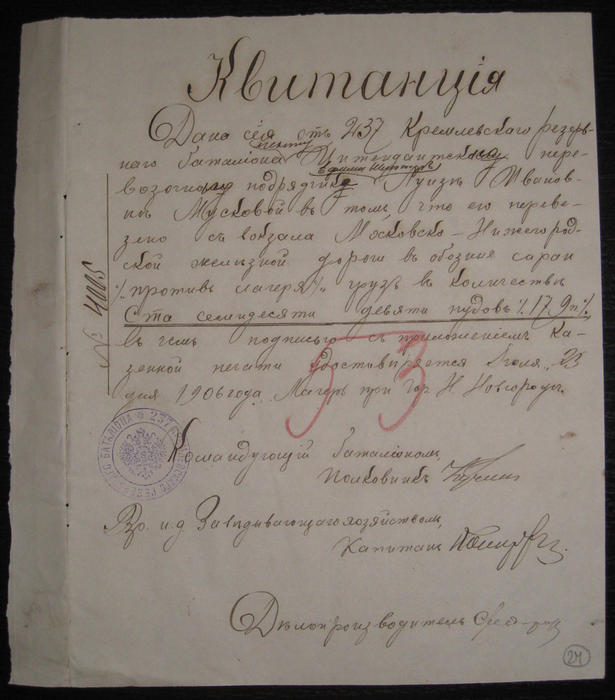 Квитанція
Дана сія отъ 237 Кремлевскаго резерв-
наго баталіона Интендантско пере-
возочн подрядчик Луизѣ Иванов-
нѣ Мусковой въ томъ, что ею переве-
зено съ вокзала Московско-Нижегород-
ской желѣзной дороги въ обозный сарай
"/противъ лагеря/" грузъ въ количествѣ
Ста семидесяти девяти пудовъ /179 п/
въ чемъ подписью съ приложеніемъ ка-
зенной печати удостовѣряется Іюля "23
дня 1906 года. Лагерь при гор. Н. Новгородѣ.
№ 4005
53
237 РЕЗЕРВНАГО БАТАЛІОНА
Командующій баталіономъ,
Полковникъ
Вр. и. д. Завѣдывающаго хозяйствомъ,
Капитанъ
Дѣлопроизводитель
24